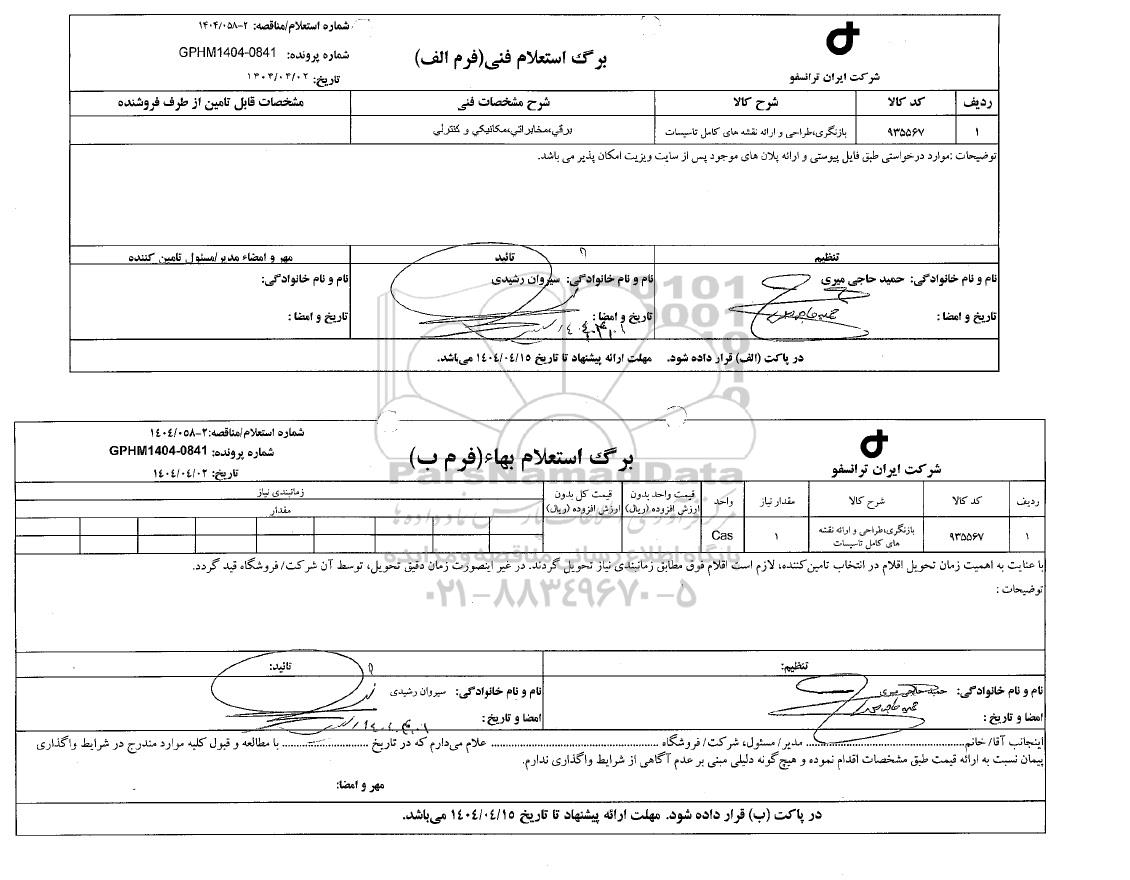 شماره استعلام/مناقصه: ۲-۱۴۰۴/۰۵۸
برگ استعلام فنی(فرم الف)
شماره پرونده: GPHM1404-0841
تاریخ: ۱۴۰۴/۰۴/۰۲
شرکت ایران ترانسفو
ردیف کد کالا شرح کالا شرح مشخصات فنی مشخصات قابل تامین از طرف فروشنده
۱ ۹۳۵۵۶۷ بازنگری،طراحی و ارائه نقشه های کامل تاسیسات برقی،مخابراتی،مکانیکی و کنترلی
توضیحات :موارد درخواستی طبق فایل پیوستی و ارائه پلان های موجود پس از سایت ویزیت امکان پذیر می باشد.
تنظیم تائید مهر و امضاء مدیر/مسئول تامین کننده
نام و نام خانوادگی: حمید حاجی میری نام و نام خانوادگی: سیروان رشیدی نام و نام خانوادگی:
تاریخ و امضا : تاریخ و امضا : تاریخ و امضا :
در پاکت (الف) قرار داده شود. مهلت ارائه پیشنهاد تا تاریخ ۱٤۰٤/۰٤/۱٥ می‌باشد.
شماره استعلام/مناقصه:۲-۱٤۰٤/۰٥۸
برگ استعلام بهاء(فرم ب)
شماره پرونده: GPHM1404-0841
شرکت ایران ترانسفو
تاریخ: ۱٤۰٤/۰٤/۰۲
ParsNamadData
ردیف کد کالا شرح کالا مقدار نیاز واحد قیمت واحد بدون ارزش افزوده (ریال) قیمت کل بدون ارزش افزوده (ریال) زمانبندی نیاز
مقدار
۱ ۹۳۵۵۶۷ بازنگری،طراحی و ارائه نقشه های کامل تاسیسات ۱ Cas
پایگاه اطلاع رسانی مناقصه و مزایده
با عنایت به اهمیت زمان تحویل اقلام در انتخاب تامین‌کننده، لازم است اقلام فوق مطابق زمانبندی نیاز تحویل گردند. در غیر اینصورت زمان دقیق تحویل، توسط آن شرکت/ فروشگاه قید گردد.
توضیحات :
۰۲۱-۸۸۳۴۹۶۷۰-۵
تنظیم: تائید:
نام و نام خانوادگی: حمید حاجی میری نام و نام خانوادگی: سیروان رشیدی
امضا و تاریخ : امضا و تاریخ :
اینجانب آقا/ خانم........................ مدیر/ مسئول، شرکت/ فروشگاه ........................ علام می‌دارم که در تاریخ ........................ با مطالعه و قبول کلیه موارد مندرج در شرایط واگذاری
پیمان نسبت به ارائه قیمت طبق مشخصات اقدام نموده و هیچ‌گونه دلیلی مبنی بر عدم آگاهی از شرایط واگذاری ندارم.
مهر و امضا:
در پاکت (ب) قرار داده شود. مهلت ارائه پیشنهاد تا تاریخ ۱٤۰٤/۰٤/۱٥ می‌باشد.